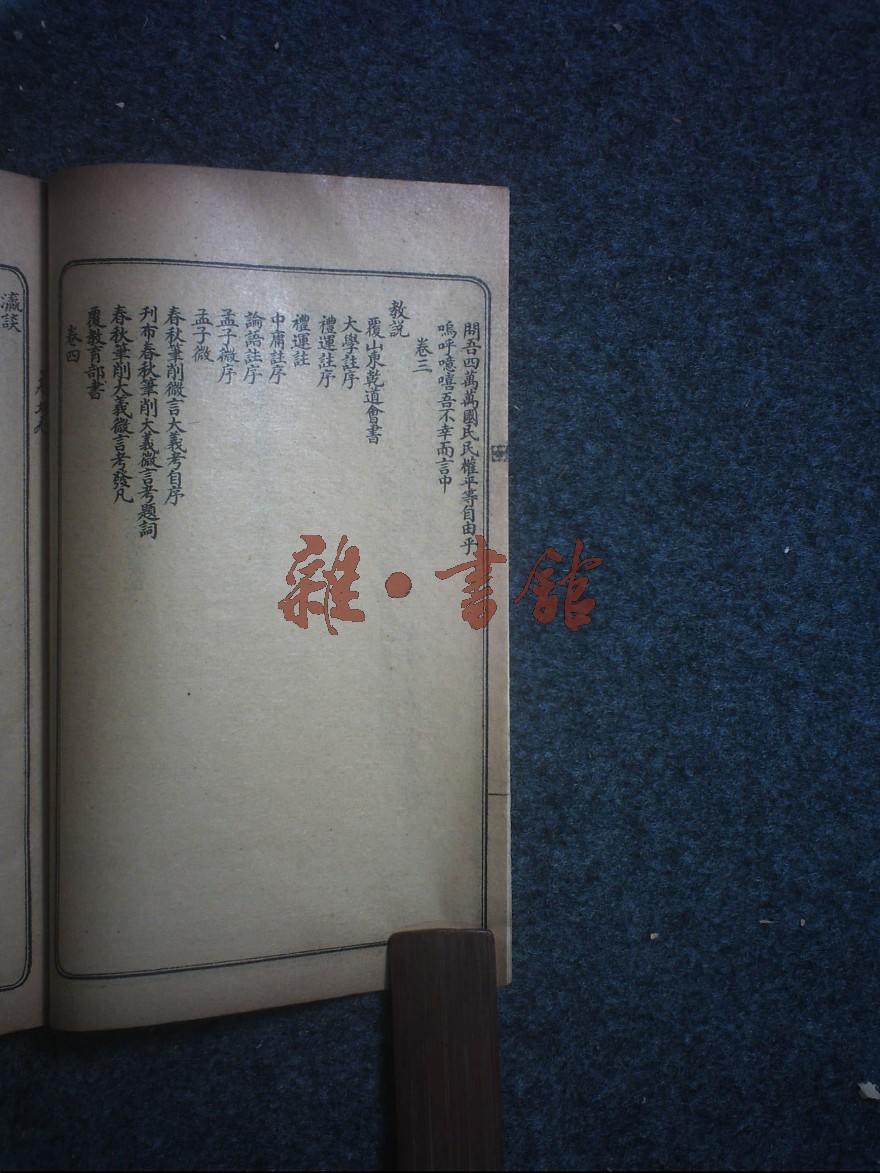 問吾四萬萬國民民權平等自由乎
嗚呼噫嘻吾不幸而言中
卷三
教說
覆山東乾道會書
大學註序
禮運註序
禮運註
中庸註序
論語註序
孟子微序
孟子微
春秋筆削微言大義考自序
刋布春秋筆削大義微言考題詞
春秋筆削大義微言考發凡
覆教育部書
卷四
瀛談
雜·書館